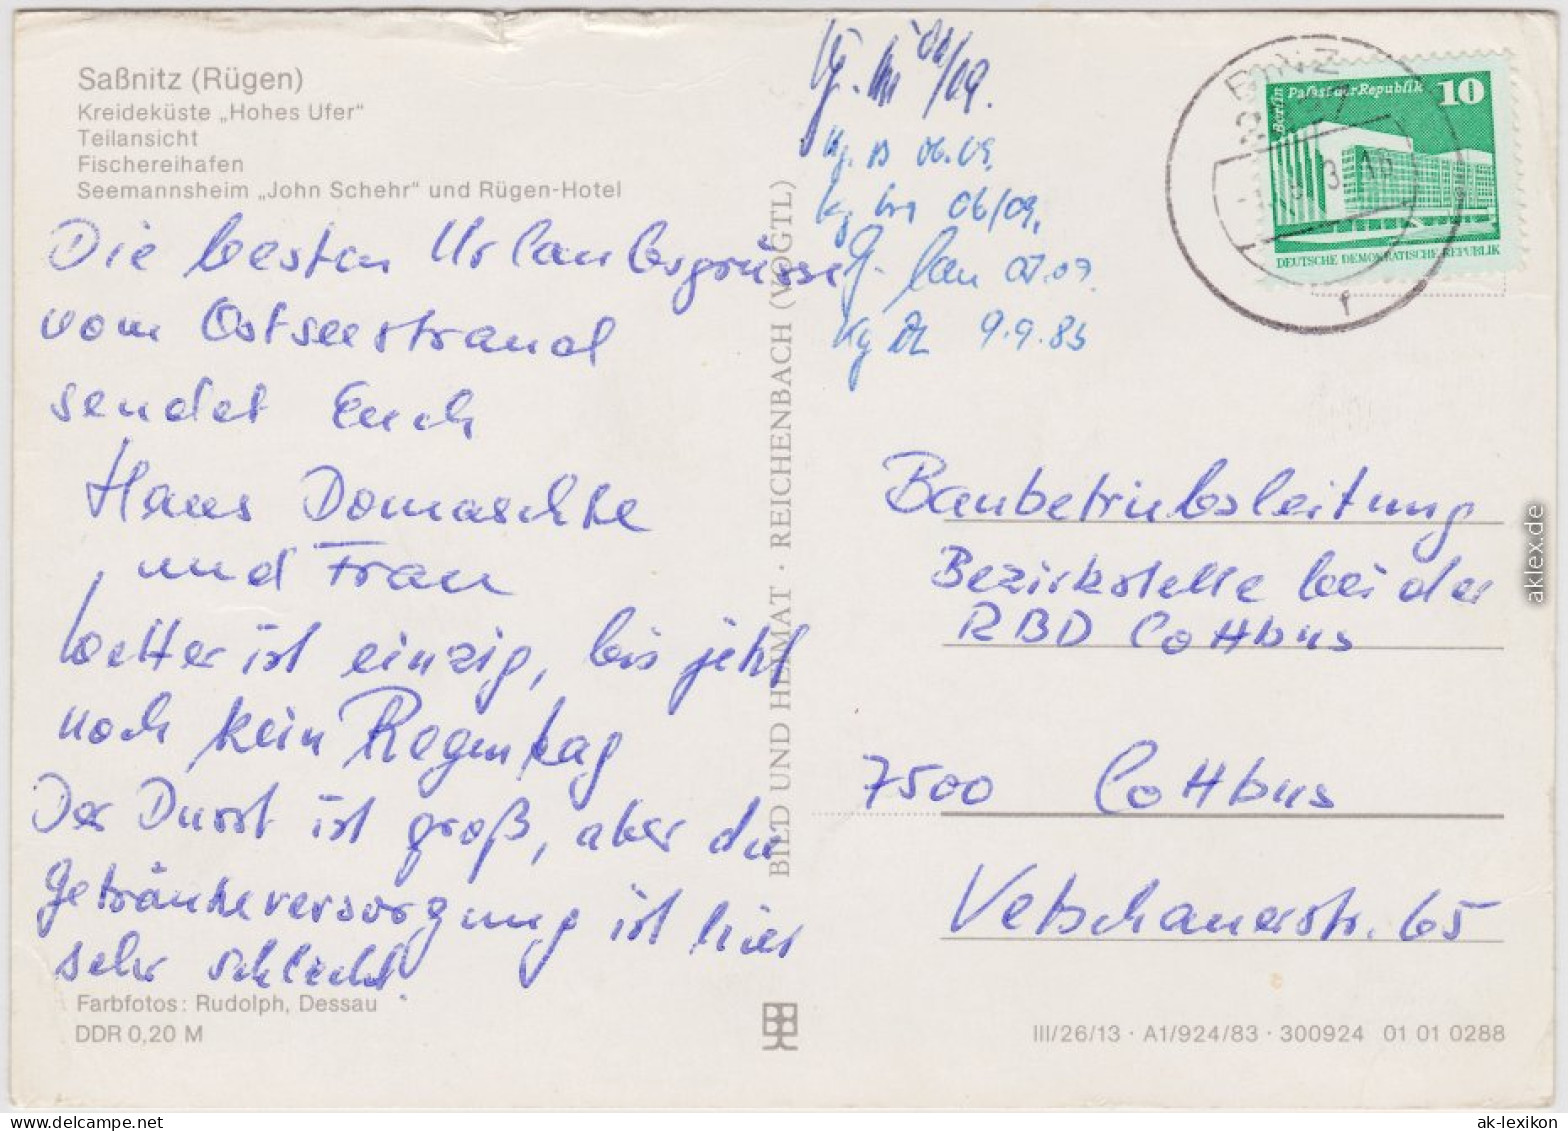 Saßnitz (Rügen)
Kreideküste „Hohes Ufer“
Teilansicht
Fischereihafen
Seemannsheim „John Schehr“ und Rügen-Hotel
Die besten Urlaubsgrüsse
vom Ostseestrand
sendet Euch
Hans Domaschke
und Frau
Wetter ist einzig, bis jetzt
noch kein Regentag
Der Durst ist groß, aber die
Getränkeversorgung ist hier
sehr schlecht.
Farbfotos: Rudolph, Dessau
DDR 0,20 M
BILD UND HEIMAT · REICHENBACH (VOGTL)
06/09.
06.09.
06/09.
07.09.
9.9.83
BINZ
Berlin
Palast der Republik
10
DEUTSCHE DEMOKRATISCHE REPUBLIK
f
Baubetriebsleitung
Bezirkstelle bei der
RBD Cottbus
7500 Cottbus
Vetschauerstr. 65
III/26/13 · A1/924/83 · 300924 01 01 0288
aklex.de
ak-lexikon